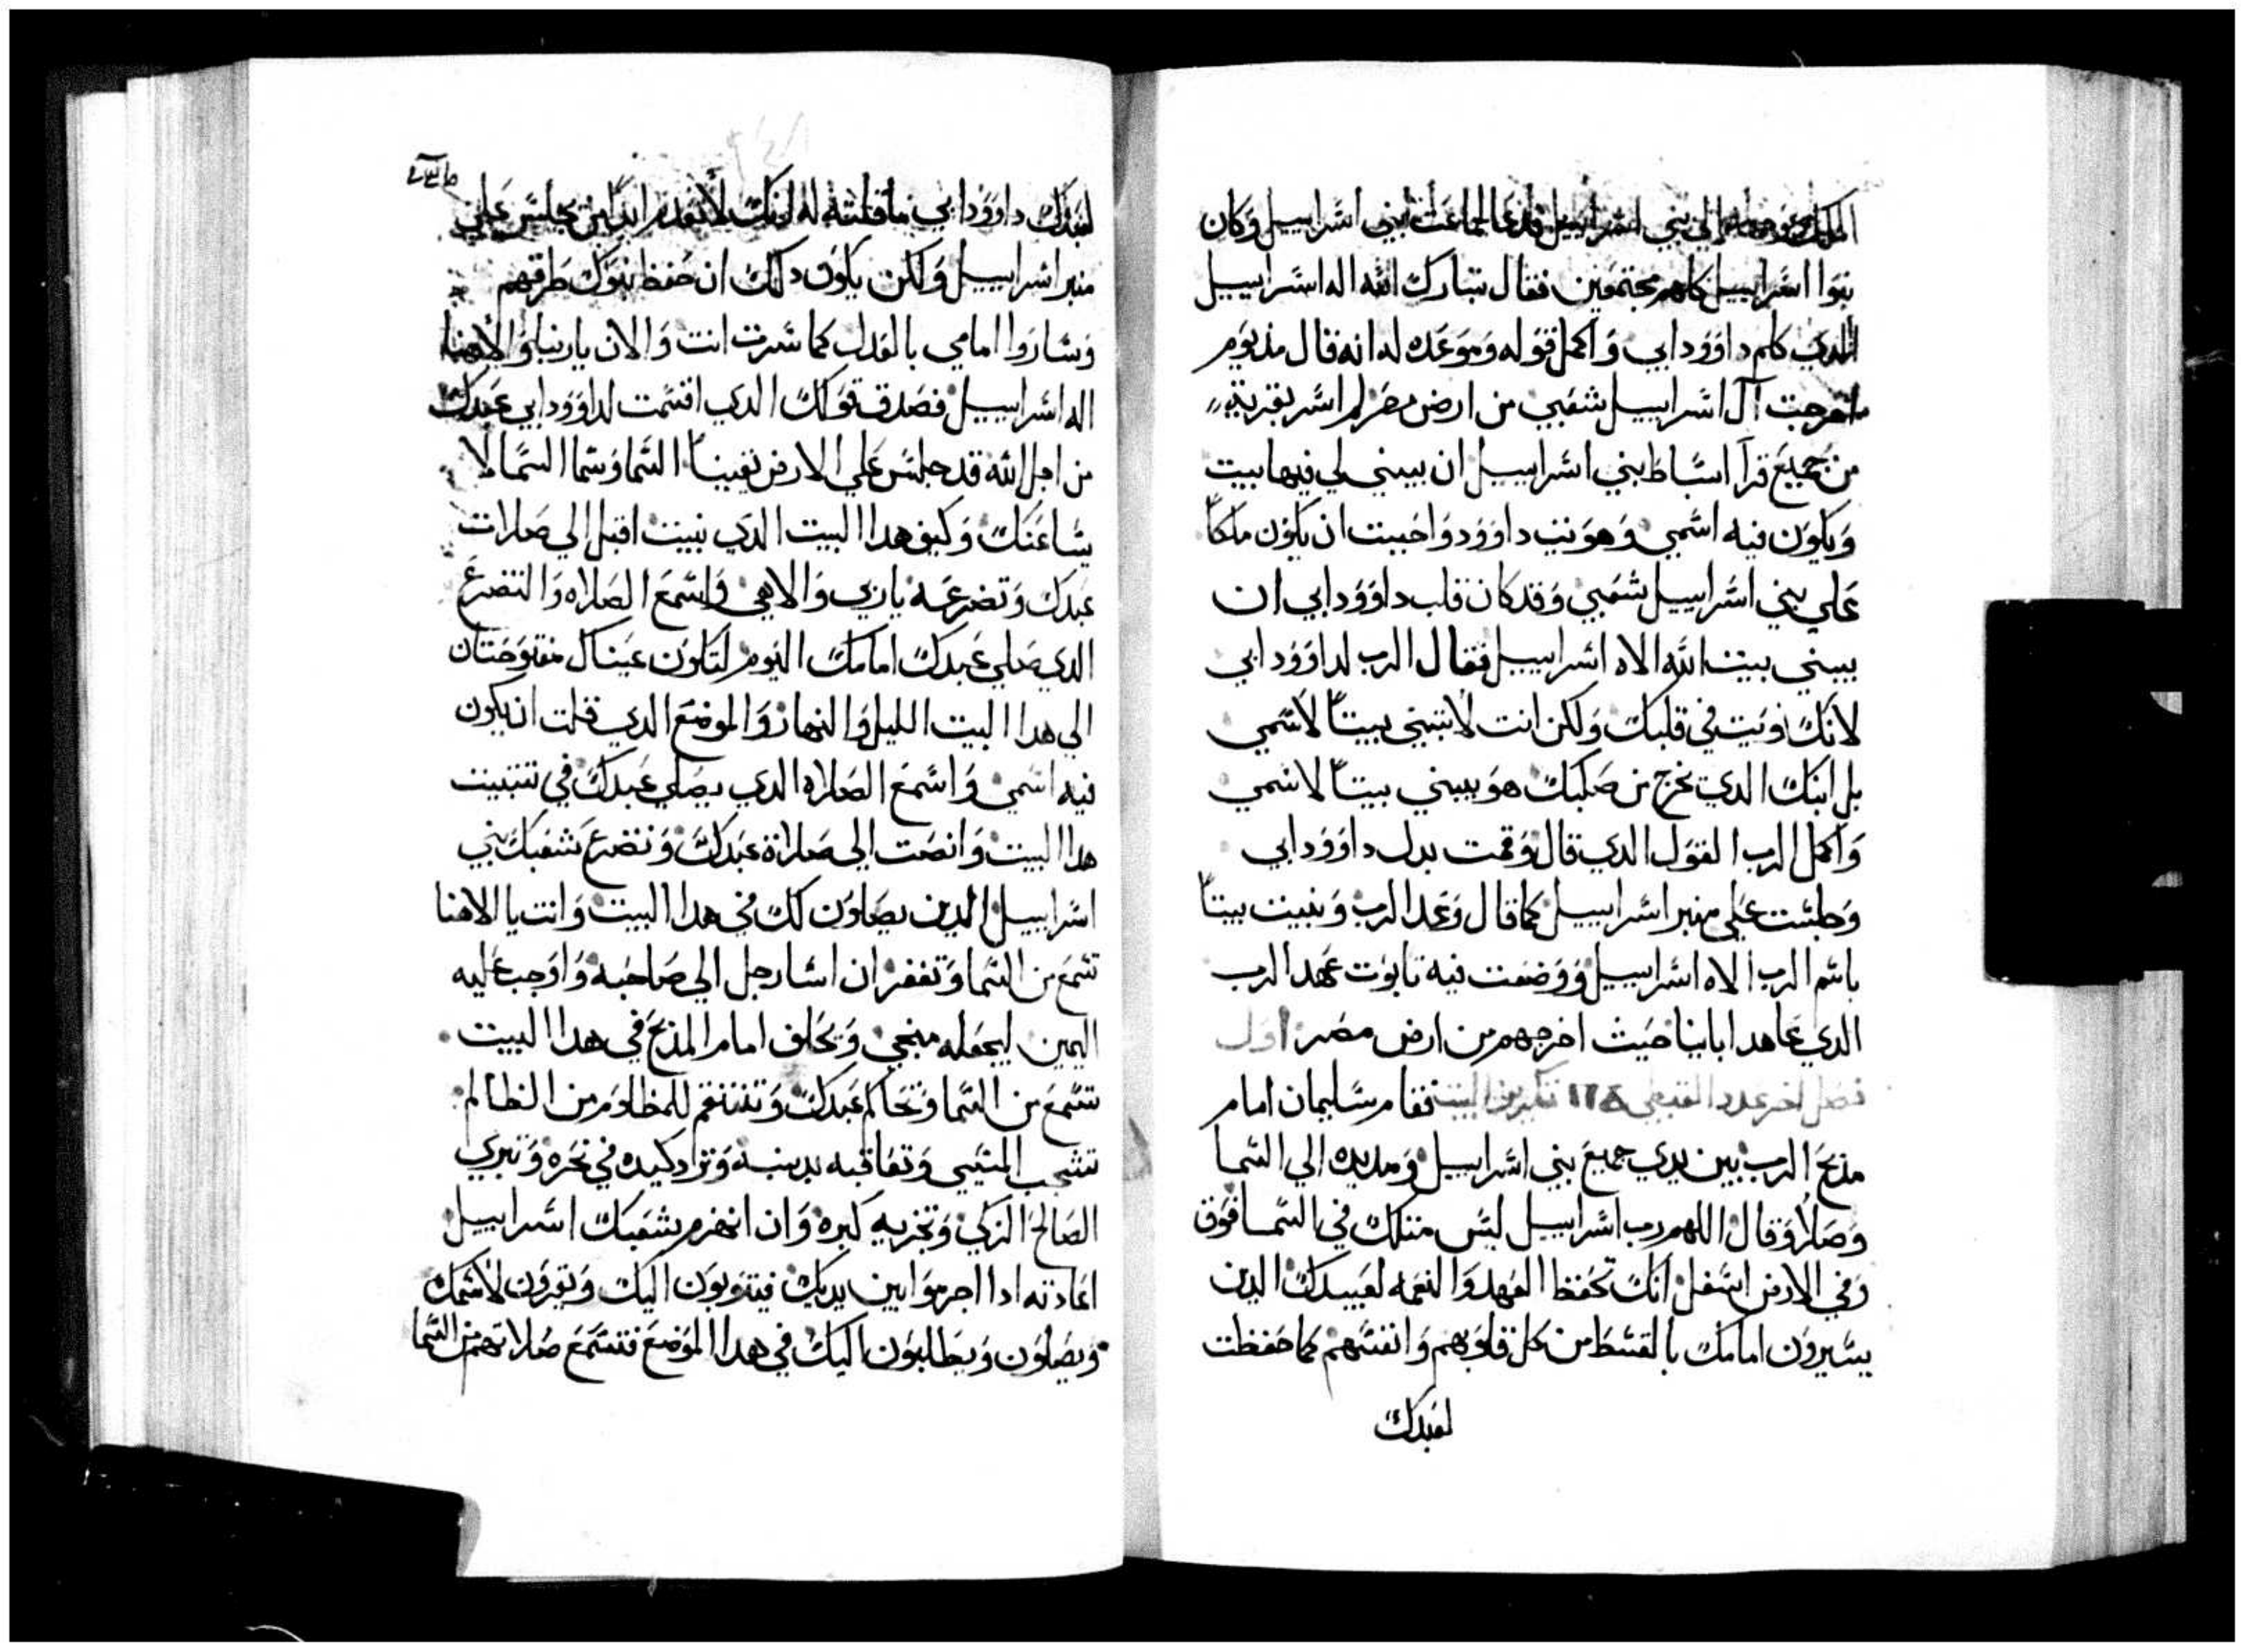 الملك وجهه الي بني اسراييل فدعا لجماعة بني اسراييل وكان
بنوا اسراييل كلهم مجتمعين فقال تبارك الله اله اسراييل
الدي كلم داوود ابي واكمل قوله وموعده له انه قال مذ يوم
اخرجت آل اسراييل شعبي من ارض مصر لم اسر بقرية
من جميع قرآ اسباط بني اسراييل ان يبني لي فيها بيت
ويكون فيه اسمي وهويت داوود واحببت ان يكون ملكاً
علي بني اسراييل شعبي وقد كان قلب داوود ابي ان
يبني بيت الله الاه اسراييل فقال الرب لداوود ابي
لانك نويت في قلبك ولكن انت لا تبني بيتاً لاسمي
بل ابنك الدي يخرج من صلبك هو يبني بيتاً لاسمي
واكمل الرب القول الدي قال وقمت بدل داوود ابي
وجلست علي منبر اسراييل كما قال وعد الرب وبنيت بيتاً
باسم الرب الاه اسراييل ووضعت فيه تابوت عهد الرب
الدي عاهد ابانيا حيث اخرجهم من ارض مصر اول
فصل اخر عدد القبطي البيت فقام سليمان امام
مذبح الرب بين يدي جميع بني اسراييل ومد يده الي السما
وصلا وقال اللهم رب اسراييل ليس متلك في السما فوق
وفي الارض اسفل انك تحفظ العهد والنعمه لعبيدك الدين
يسيرون امامك بالقسط من كل قلوبهم وانفسهم كما حفظت
لعبدك
لعبدك داوود ابي ما قلته له انك لا تعدم ابداً من يجلس علي
منبر اسراييل ولكن يكون دلك ان حفظ بنوك طرقهم
وساروا امامي بالعدل كما سرت انت والان يا ربنا والاهنا
اله اسراييل فصدق قولك الدي اقسمت لداوود ابي عبدك
من اجل الله قد جلس علي الارض يقيناً السما وسما السما لا
يساعنك وكيف هدا البيت الدي بنيت اقبل الي صلات
عبدك وتضرعه يا ربي والاهي واسمع الصلاه والتضرع
الدي صلي عبدك امامك اليوم لتكون عيناك مفتوحتان
الي هدا البيت الليل والنهار والموضع الدي قلت ان يكون
فيه اسمي واسمع الصلاه الدي يصلي عبدك في تتبيت
هدا البيت وانصت الي صلاة عبدك وتضرع شعبك بني
اسراييل الدين يصلون لك في هدا البيت وانت يا الاهنا
تسمع من السما وتغفر ان اسا رجل الي صاحبه واوجب عليه
اليمين ليجعله منجي ويحلف امام المذبح في هدا البيت
تسمع من السما وتحاكم عبدك وتنتقم للمظلوم من الظالم
تشجب المسي وتعاقبه بدينه وترد كيده في نحره وتبري
الصالح الزكي وتجزيه كبره وان انهزم شعبك اسراييل
اعادته ادا اجرموا بين يديك فيتوبون اليك ويقرون لاسمك
ويصلون ويطلبون اليك في هدا الموضع فتسمع صلاتهم من السما